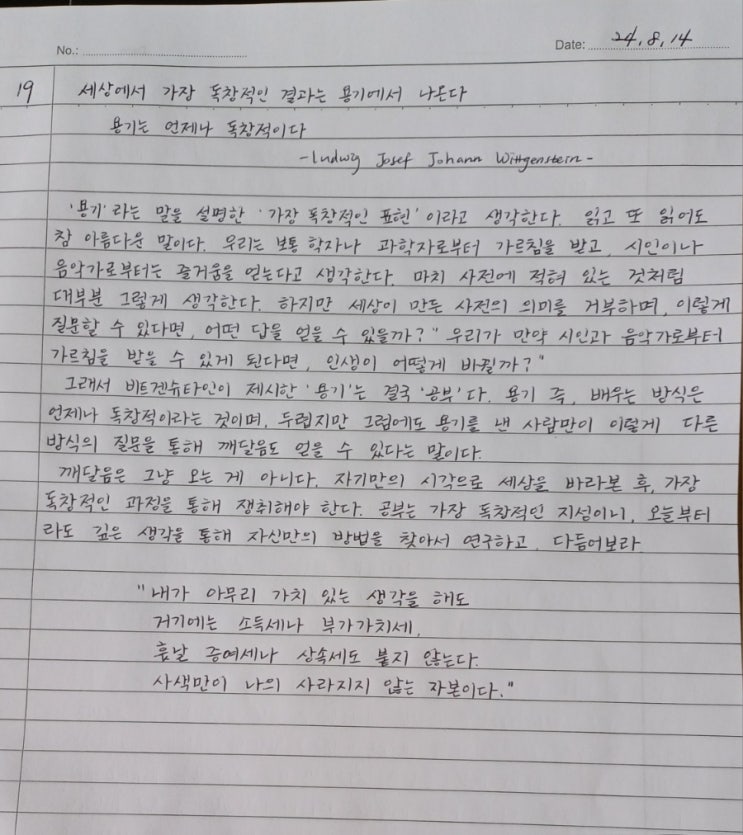 No.:
Date: 24, 8, 14
19 세상에서 가장 독창적인 결과는 용기에서 나온다
용기는 언제나 독창적이다
-Ludwig Josef Johann Wittgenstein-
'용기'라는 말을 설명한 '가장 독창적인 표현'이라고 생각한다. 읽고 또 읽어도
참 아름다운 말이다. 우리는 보통 학자나 과학자로부터 가르침을 받고, 시인이나
음악가로부터는 즐거움을 얻는다고 생각한다. 마치 사전에 적혀 있는 것처럼
대부분 그렇게 생각한다. 하지만 세상이 만든 사전의 의미를 거부하며, 이렇게
질문할 수 있다면, 어떤 답을 얻을 수 있을까? "우리가 만약 시인과 음악가로부터
가르침을 받을 수 있게 된다면, 인생이 어떻게 바뀔까?"
그래서 비트겐슈타인이 제시한 '용기'는 결국 '공부'다. 용기 즉, 배우는 방식은
언제나 독창적이라는 것이며, 두렵지만 그럼에도 용기를 낸 사람만이 이렇게 다른
방식의 질문을 통해 깨달음도 얻을 수 있다는 말이다.
깨달음은 그냥 오는 게 아니다. 자기만의 시각으로 세상을 바라본 후, 가장
독창적인 과정을 통해 쟁취해야 한다. 공부는 가장 독창적인 지성이니, 오늘부터
라도 깊은 생각을 통해 자신만의 방법을 찾아서 연구하고, 다듬어보라
"내가 아무리 가치 있는 생각을 해도
거기에는 소득세나 부가가치세,
훗날 증여세나 상속세도 붙지 않는다.
사색만이 나의 사라지지 않는 자본이다."